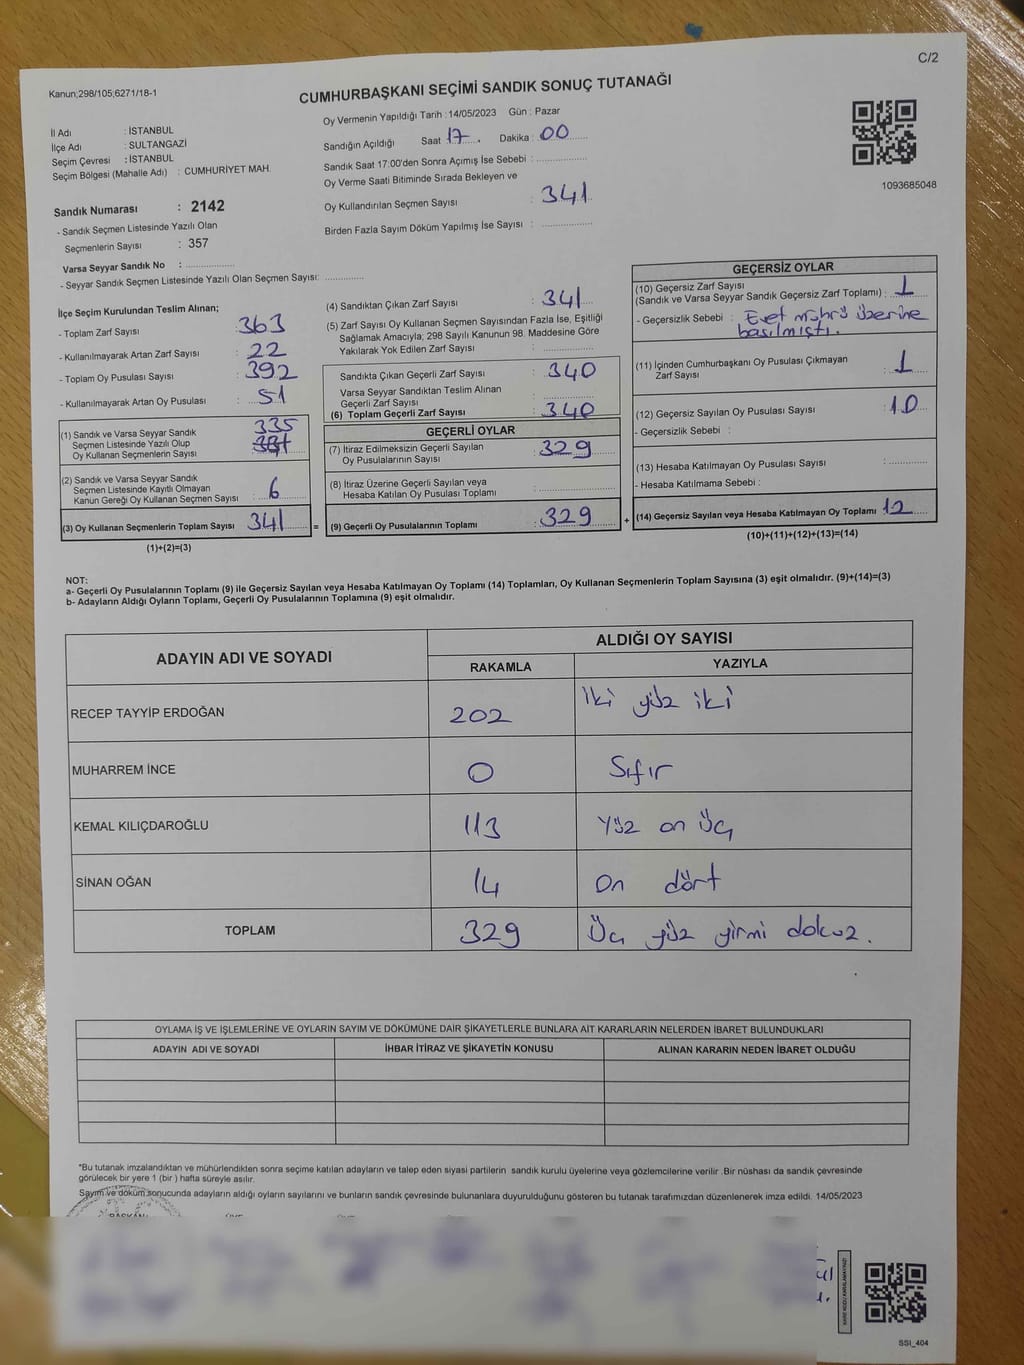 C/2
Kanun;298/105;6271/18-1
CUMHURBAŞKANI SEÇİMİ SANDIK SONUÇ TUTANAĞI
İl Adı : İSTANBUL
İlçe Adı : SULTANGAZİ
Seçim Çevresi : İSTANBUL
Seçim Bölgesi (Mahalle Adı) : CUMHURİYET MAH.
Oy Vermenin Yapıldığı Tarih : 14/05/2023 Gün : Pazar
Sandığın Açıldığı Saat 17 Dakika : 00
Sandık Saat 17:00'den Sonra Açımış İse Sebebi :
Oy Verme Saati Bitiminde Sırada Bekleyen ve
Oy Kullandırılan Seçmen Sayısı : 341
Birden Fazla Sayım Döküm Yapılmış İse Sayısı :
1093685048
Sandık Numarası : 2142
- Sandık Seçmen Listesinde Yazılı Olan
Seçmenlerin Sayısı : 357
Varsa Seyyar Sandık No :
- Seyyar Sandık Seçmen Listesinde Yazılı Olan Seçmen Sayısı:
İlçe Seçim Kurulundan Teslim Alınan;
- Toplam Zarf Sayısı : 363
- Kullanılmayarak Artan Zarf Sayısı : 22
- Toplam Oy Pusulası Sayısı : 392
- Kullanılmayarak Artan Oy Pusulası : 51
335
(1) Sandık ve Varsa Seyyar Sandık
Seçmen Listesinde Yazılı Olup
Oy Kullanan Seçmenlerin Sayısı
(2) Sandık ve Varsa Seyyar Sandık
Seçmen Listesinde Kayıtlı Olmayan
Kanun Gereği Oy Kullanan Seçmen Sayısı : 6
(3) Oy Kullanan Seçmenlerin Toplam Sayısı 341 =
(1)+(2)=(3)
(4) Sandıktan Çıkan Zarf Sayısı : 341
(5) Zarf Sayısı Oy Kullanan Seçmen Sayısından Fazla İse, Eşitliği
Sağlamak Amacıyla; 298 Sayılı Kanunun 98. Maddesine Göre
Yakılarak Yok Edilen Zarf Sayısı :
Sandıkta Çıkan Geçerli Zarf Sayısı : 340
Varsa Seyyar Sandıktan Teslim Alınan
Geçerli Zarf Sayısı :
(6) Toplam Geçerli Zarf Sayısı : 340
GEÇERLİ OYLAR
(7) İtiraz Edilmeksizin Geçerli Sayılan
Oy Pusulalarının Sayısı : 329
(8) İtiraz Üzerine Geçerli Sayılan veya
Hesaba Katılan Oy Pusulası Toplamı :
(9) Geçerli Oy Pusulalarının Toplamı : 329 +
GEÇERSİZ OYLAR
(10) Geçersiz Zarf Sayısı
(Sandık ve Varsa Seyyar Sandık Geçersiz Zarf Toplamı) : 1
- Geçersizlik Sebebi : Evet mührü üzerine
basılmıştı.
(11) İçinden Cumhurbaşkanı Oy Pusulası Çıkmayan
Zarf Sayısı : 1
(12) Geçersiz Sayılan Oy Pusulası Sayısı : 10
- Geçersizlik Sebebi :
(13) Hesaba Katılmayan Oy Pusulası Sayısı :
- Hesaba Katılmama Sebebi :
(14) Geçersiz Sayılan veya Hesaba Katılmayan Oy Toplamı : 12
(10)+(11)+(12)+(13)=(14)
NOT:
a- Geçerli Oy Pusulalarının Toplamı (9) ile Geçersiz Sayılan veya Hesaba Katılmayan Oy Toplamı (14) Toplamları, Oy Kullanan Seçmenlerin Toplam Sayısına (3) eşit olmalıdır. (9)+(14)=(3)
b- Adayların Aldığı Oyların Toplamı, Geçerli Oy Pusulalarının Toplamına (9) eşit olmalıdır.
ADAYIN ADI VE SOYADI ALDIĞI OY SAYISI
RAKAMLA YAZIYLA
RECEP TAYYİP ERDOĞAN 202 İki yüz iki
MUHARREM İNCE 0 Sıfır
KEMAL KILIÇDAROĞLU 113 Yüz on üç
SİNAN OĞAN 14 On dört
TOPLAM 329 Üç yüz yirmi dokuz.
OYLAMA İŞ VE İŞLEMLERİNE VE OYLARIN SAYIM VE DÖKÜMÜNE DAİR ŞİKAYETLERLE BUNLARA AİT KARARLARIN NELERDEN İBARET BULUNDUKLARI
ADAYIN ADI VE SOYADI İHBAR İTİRAZ VE ŞİKAYETİN KONUSU ALINAN KARARIN NEDEN İBARET OLDUĞU
*Bu tutanak imzalandıktan ve mühürlendikten sonra seçime katılan adayların ve talep eden siyasi partilerin sandık kurulu üyelerine veya gözlemcilerine verilir .Bir nüshası da sandık çevresinde
görülecek bir yere 1 (bir ) hafta süreyle asılır.
Sayım ve döküm sonucunda adayların aldığı oyların sayılarını ve bunların sandık çevresinde bulunanlara duyurulduğunu gösteren bu tutanak tarafımızdan düzenlenerek imza edildi. 14/05/2023
BAŞKAN
SSI_404